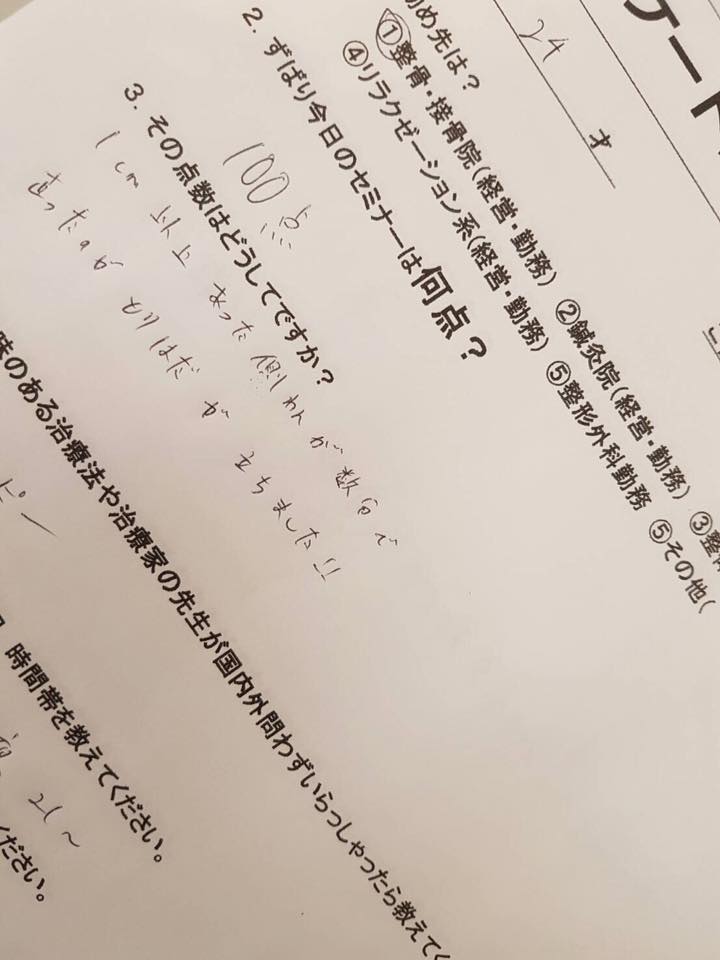 ケート
24 才
め先は?
①整骨・接骨院(経営・勤務) ②鍼灸院(経営・勤務) ③整
④リラクゼーション系(経営・勤務) ⑤整形外科勤務 ⑤その他(
2. ずばり今日のセミナーは何点?
100点
3. その点数はどうしてですか?
1cm 以上 あった 側わんが 数分で
とりはだ が 立ちました!!
味のある治療法や治療家の先生が国内外問わずいらっしゃったら教えてく
時間帯を教えてください。
21~
ください。